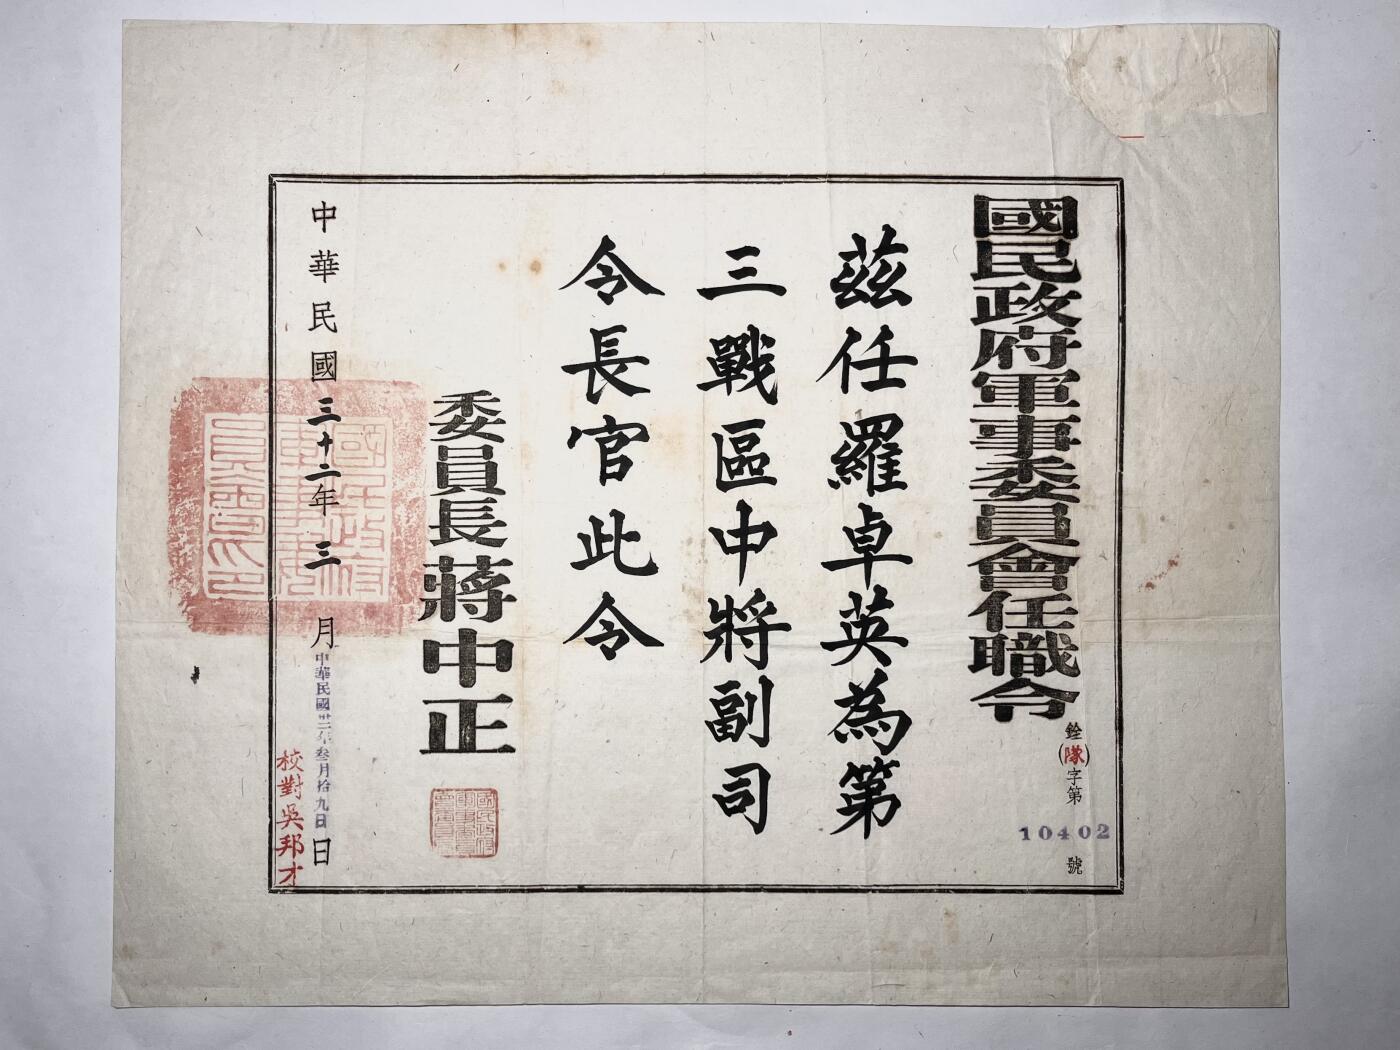 國民政府軍事委員會任職令
銓(隊)字第10402號
茲任羅卓英為第
三戰區中將副司
令長官此令
委員長蔣中正
國民政府軍事委員會印
中華民國三十二年三月
中華民國卅二年叁月拾九日
日
校對吳邦才